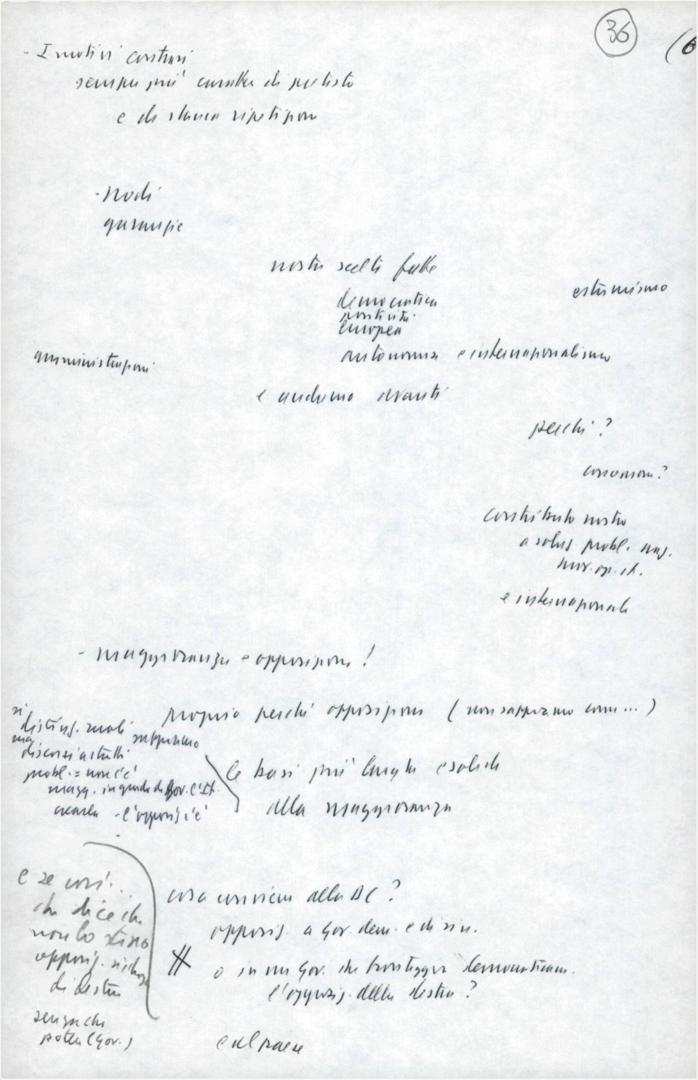 36
- I motivi contrari
sempre più carattere di pretesto
e di stanca ripetizione
- nodi
garanzie
nostre scelte fatte
democratica
europea
esterismo
autonomia e internazionalismo
amministrazioni
e andiamo avanti
perché?
contributo nostro
a soluz. probl. naz.
e internazionali
- maggioranza e opposizione!
Proprio perché opposizione (non sappiamo come...)
si disting. ruoli
sappiamo
ma discorsi astratti
probl. = non c'è
magg. in grado di gov. l'It.
crearla - l'opposiz. c'è
le basi più larghe e solide
della maggioranza
e se così...
chi dice che
non lo siano
opposiz.
di destra
senza che
poter (gov.)
cosa conviene alla DC?
opposiz. a gov. dem. e di sin.
# o in un gov. che fronteggi democraticam.
l'opposiz. della destra?
e al paese